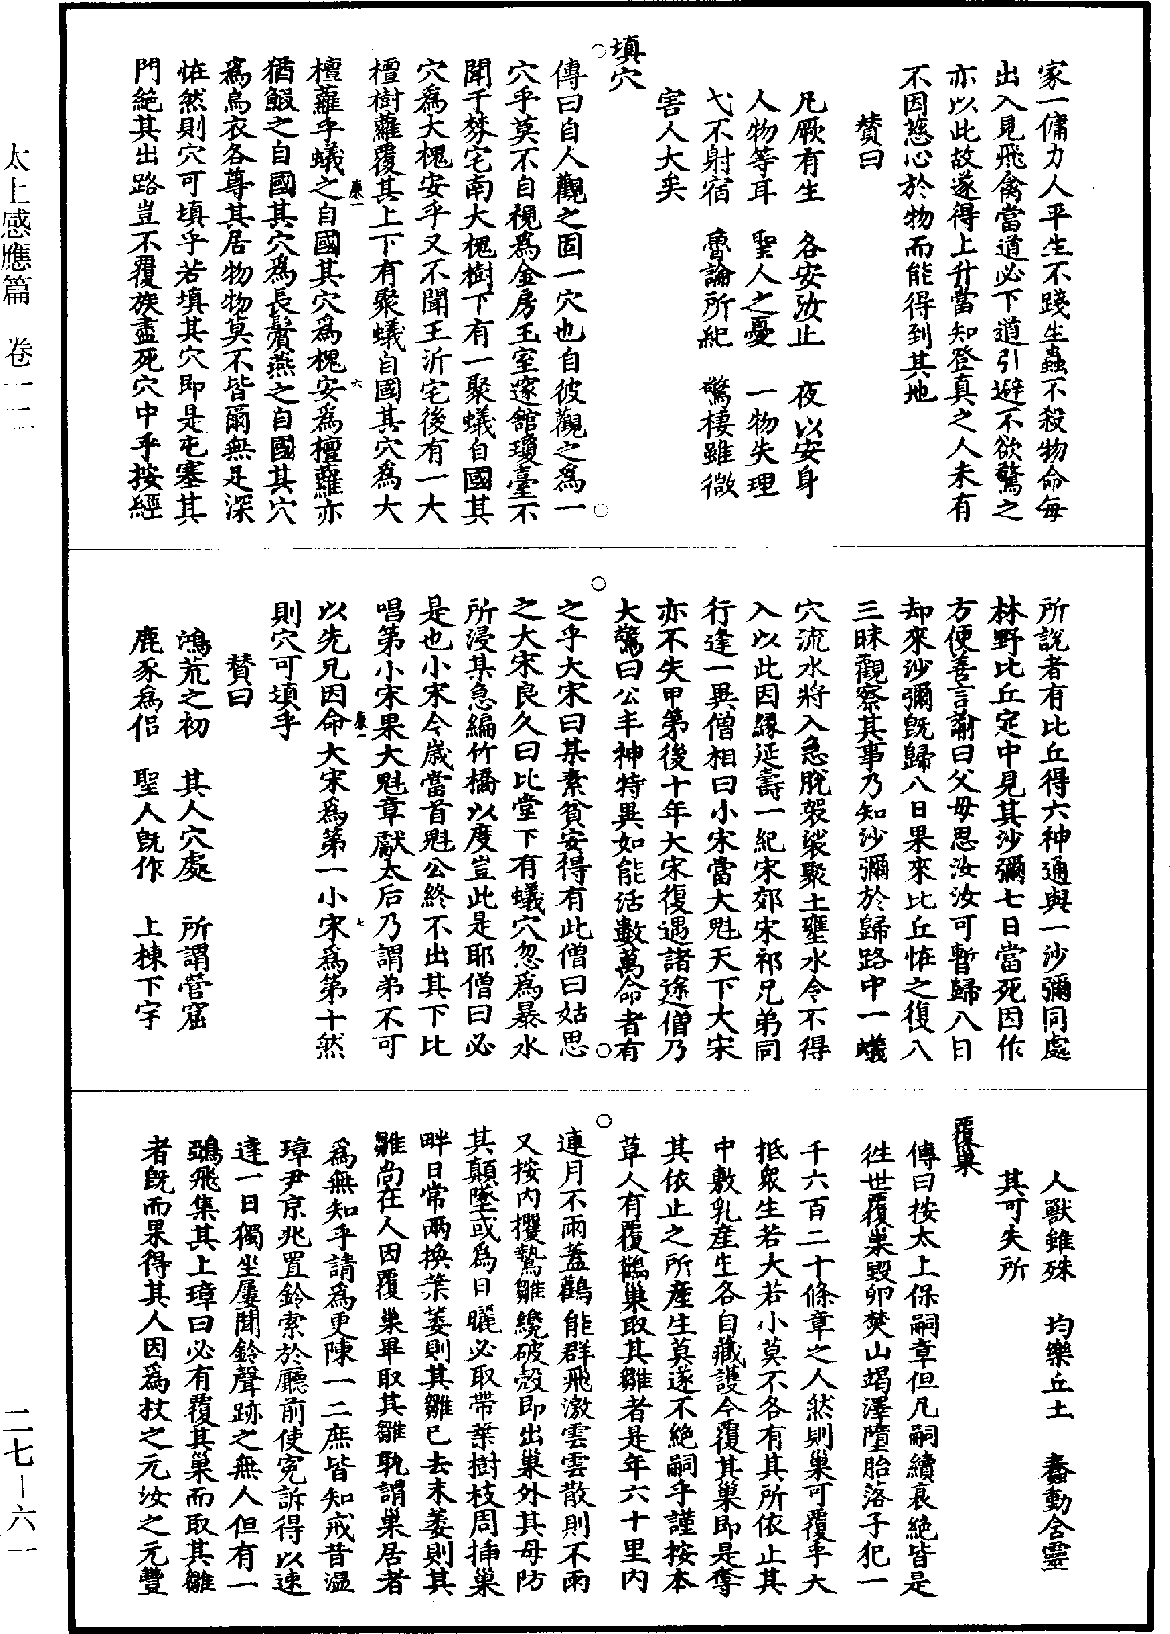 家一傭力人平生不踐生蟲不殺物命每
出入見飛禽當道必下道引避不欲驚之
亦以此故遂得上升當知登真之人未有
不因慈心於物而能得到其地
贊曰
凡厥有生　各安汝止　夜以安身
人物等耳　聖人之憂　一物失理
弋不射宿　魯論所紀　驚棲雖微
害人大矣
填穴
傳曰自人觀之固一穴也自彼觀之爲一
穴乎莫不自視爲金房玉室邃館瓊臺不
聞于棼宅南大槐樹下有一聚蟻自國其
穴爲大槐安乎又不聞王沂宅後有一大
檀樹蘿覆其上下有聚蟻自國其穴爲大
檀蘿乎蟻之自國其穴爲槐安爲檀蘿亦
猶鰕之自國其穴爲長鬚燕之自國其穴
爲烏衣各尊其居物物莫不皆爾無足深
恠然則穴可填乎若填其穴即是屯塞其
門絕其出路豈不覆族盡死穴中乎按經
所說者有比丘得六神通與一沙彌同處
林野比丘定中見其沙彌七日當死因作
方便善言諭曰父母思汝汝可暫歸八日
却來沙彌旣歸八日果來比丘恠之復入
三昧觀察其事乃知沙彌於歸路中一蟻
穴流水將入急脫袈裟聚土壅水令不得
入以此因緣延壽一紀宋郊宋祁兄弟同
行逢一異僧相曰小宋當大魁天下大宋
亦不失甲第後十年大宋復遇諸途僧乃
大驚曰公丰神特異如能活數萬命者有
之乎大宋曰某素貧安得有此僧曰姑思
之大宋良久曰比堂下有蟻穴忽爲暴水
所浸某急編竹橋以度豈此是耶僧曰必
是也小宋今歲當首魁公終不出其下比
唱第小宋果大魁章獻太后乃謂弟不可
以先兄因命大宋爲第一小宋爲第十然
則穴可填乎
贊曰
鴻荒之初　其人穴處　所謂營窟
鹿豕爲侶　聖人旣作　上棟下宇
人獸雖殊　均樂丘土　蠢動含靈
其可失所
覆巢
傳曰按太上保嗣章但凡嗣續哀絕皆是
徃世覆巢毀卵焚山竭澤墮胎落子犯一
千六百二十條章之人然則巢可覆乎大
抵眾生若大若小莫不各有其所依止其
中敷乳產生各自藏護今覆其巢即是奪
其依止之所產生莫遂不絕嗣乎謹按本
草人有覆鸛巢取其雛者是年六十里內
連月不雨蓋鸛能群飛激雲雲散則不雨
又按內攫鷙雛纔破殼即出巢外其母防
其顛墜或爲日曬必取帶葉樹枝周插巢
畔日常兩換葉萎則其雛已去未萎則其
雛尚在人因覆巢畢取其雛孰謂巢居者
爲無知乎請爲更陳一二庶皆知戒昔溫
璋尹京兆置鈴索於廳前使冤訴得以速
達一日獨坐屢聞鈴聲跡之無人但有一
鵶飛集其上璋曰必有覆其巢而取其雛
者旣而果得其人因爲杖之元汝之元豐
太上感應篇　卷一一
二七—六一